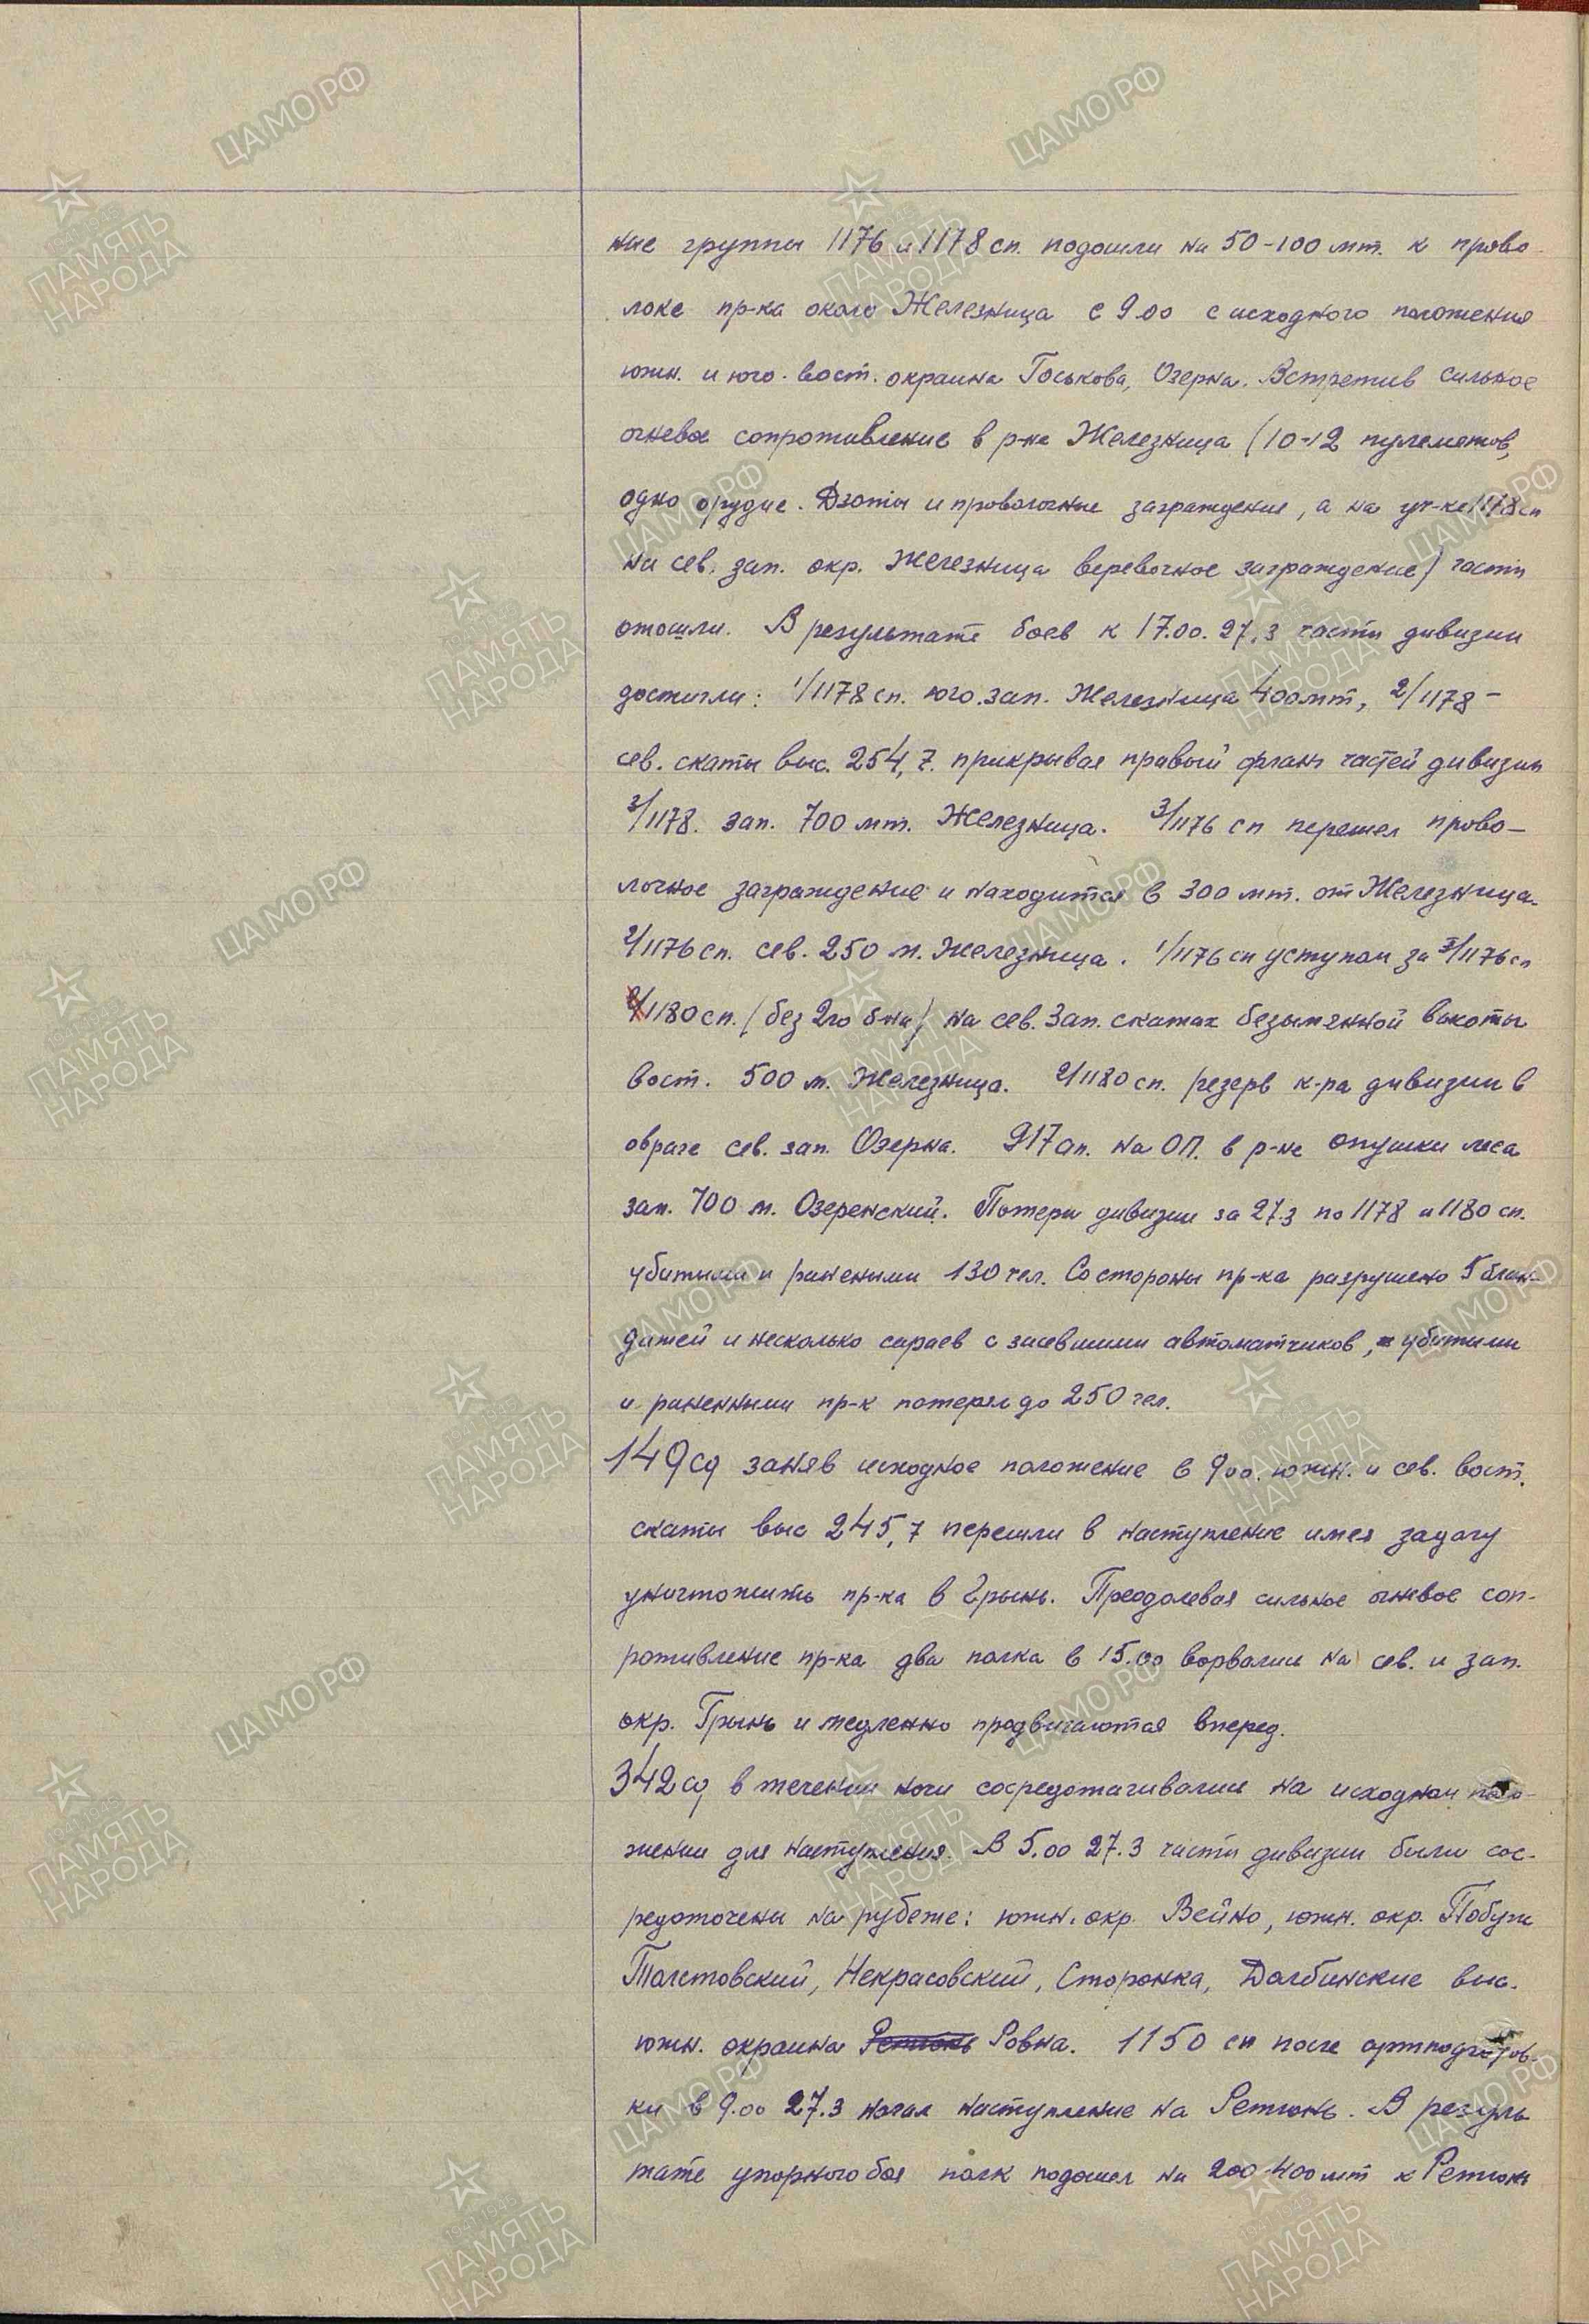 ные группы 1176 и 1178 сп. подошли на 50-100 мт. к прово-
локе пр-ка около Железница с 9.00 с исходного положения
южн. и юго-вост. окраина Госькова, Озерна. Встретив сильное
огневое сопротивление в р-не Железница (10-12 пулеметов,
одно орудие. Дзоты и проволочные заграждение, а на уч-ке 1178 сп
на сев. зап. окр. Железница веревочное заграждение) части
отошли. В результате боев к 17.00. 27.3 части дивизии
достигли: 1/1178 сп. юго. зап. Железница 400 мт, 2/1178 -
сев. скаты выс. 254,7. прикрывая правый фланг частей дивизии
3/1178. зап. 700 мт. Железница. 3/1176 сп перешел прово-
лочное заграждение и находится в 300 мт. от Железница.
2/1176 сп. сев. 250 м. Железница. 1/1176 сп уступом за 3/1176 сп
1180 сп. (без 2го б-на) на сев. зап. скатах безымянной высоты
вост. 500 м. Железница. 2/1180 сп. резерв к-ра дивизии в
овраге сев. зап. Озерна. 917 ап. на ОП. в р-не опушки леса
зап. 700 м. Озеренский. Потери дивизии за 27.3 по 1178 и 1180 сп.
убитыми и ранеными 130 чел. Со стороны пр-ка разрушено 5 блин-
дажей и несколько сараев с засевшими автоматчиков, убитыми
и раненными пр-к потерял до 250 чел.
149 сд заняв исходное положение в 9.00. южн. и сев. вост.
скаты выс 245,7 перешли в наступление имея задачу
уничтожить пр-ка в Грынь. Преодолевая сильное огневое соп-
ротивление пр-ка два полка в 15.00 ворвались на сев. и зап.
окр. Грынь и медленно продвигаются вперед.
342 сд в течении ночи сосредотачивались на исходном поло-
жении для наступления. В 5.00 27.3 части дивизии были сос-
редоточены на рубеже: южн. окр. Вейно, южн. окр. Побужи
Толстовский, Некрасовский, Сторонка, Долбинские выс.
южн. окраина Ретюнь Ровна. 1150 сп после артподготов-
ки в 9.00 27.3 начал наступление на Ретюнь. В резуль
тате упорного боя полк подошел на 200-400 мт к Ретюнь
ЦАМО РФ
ПАМЯТЬ НАРОДА